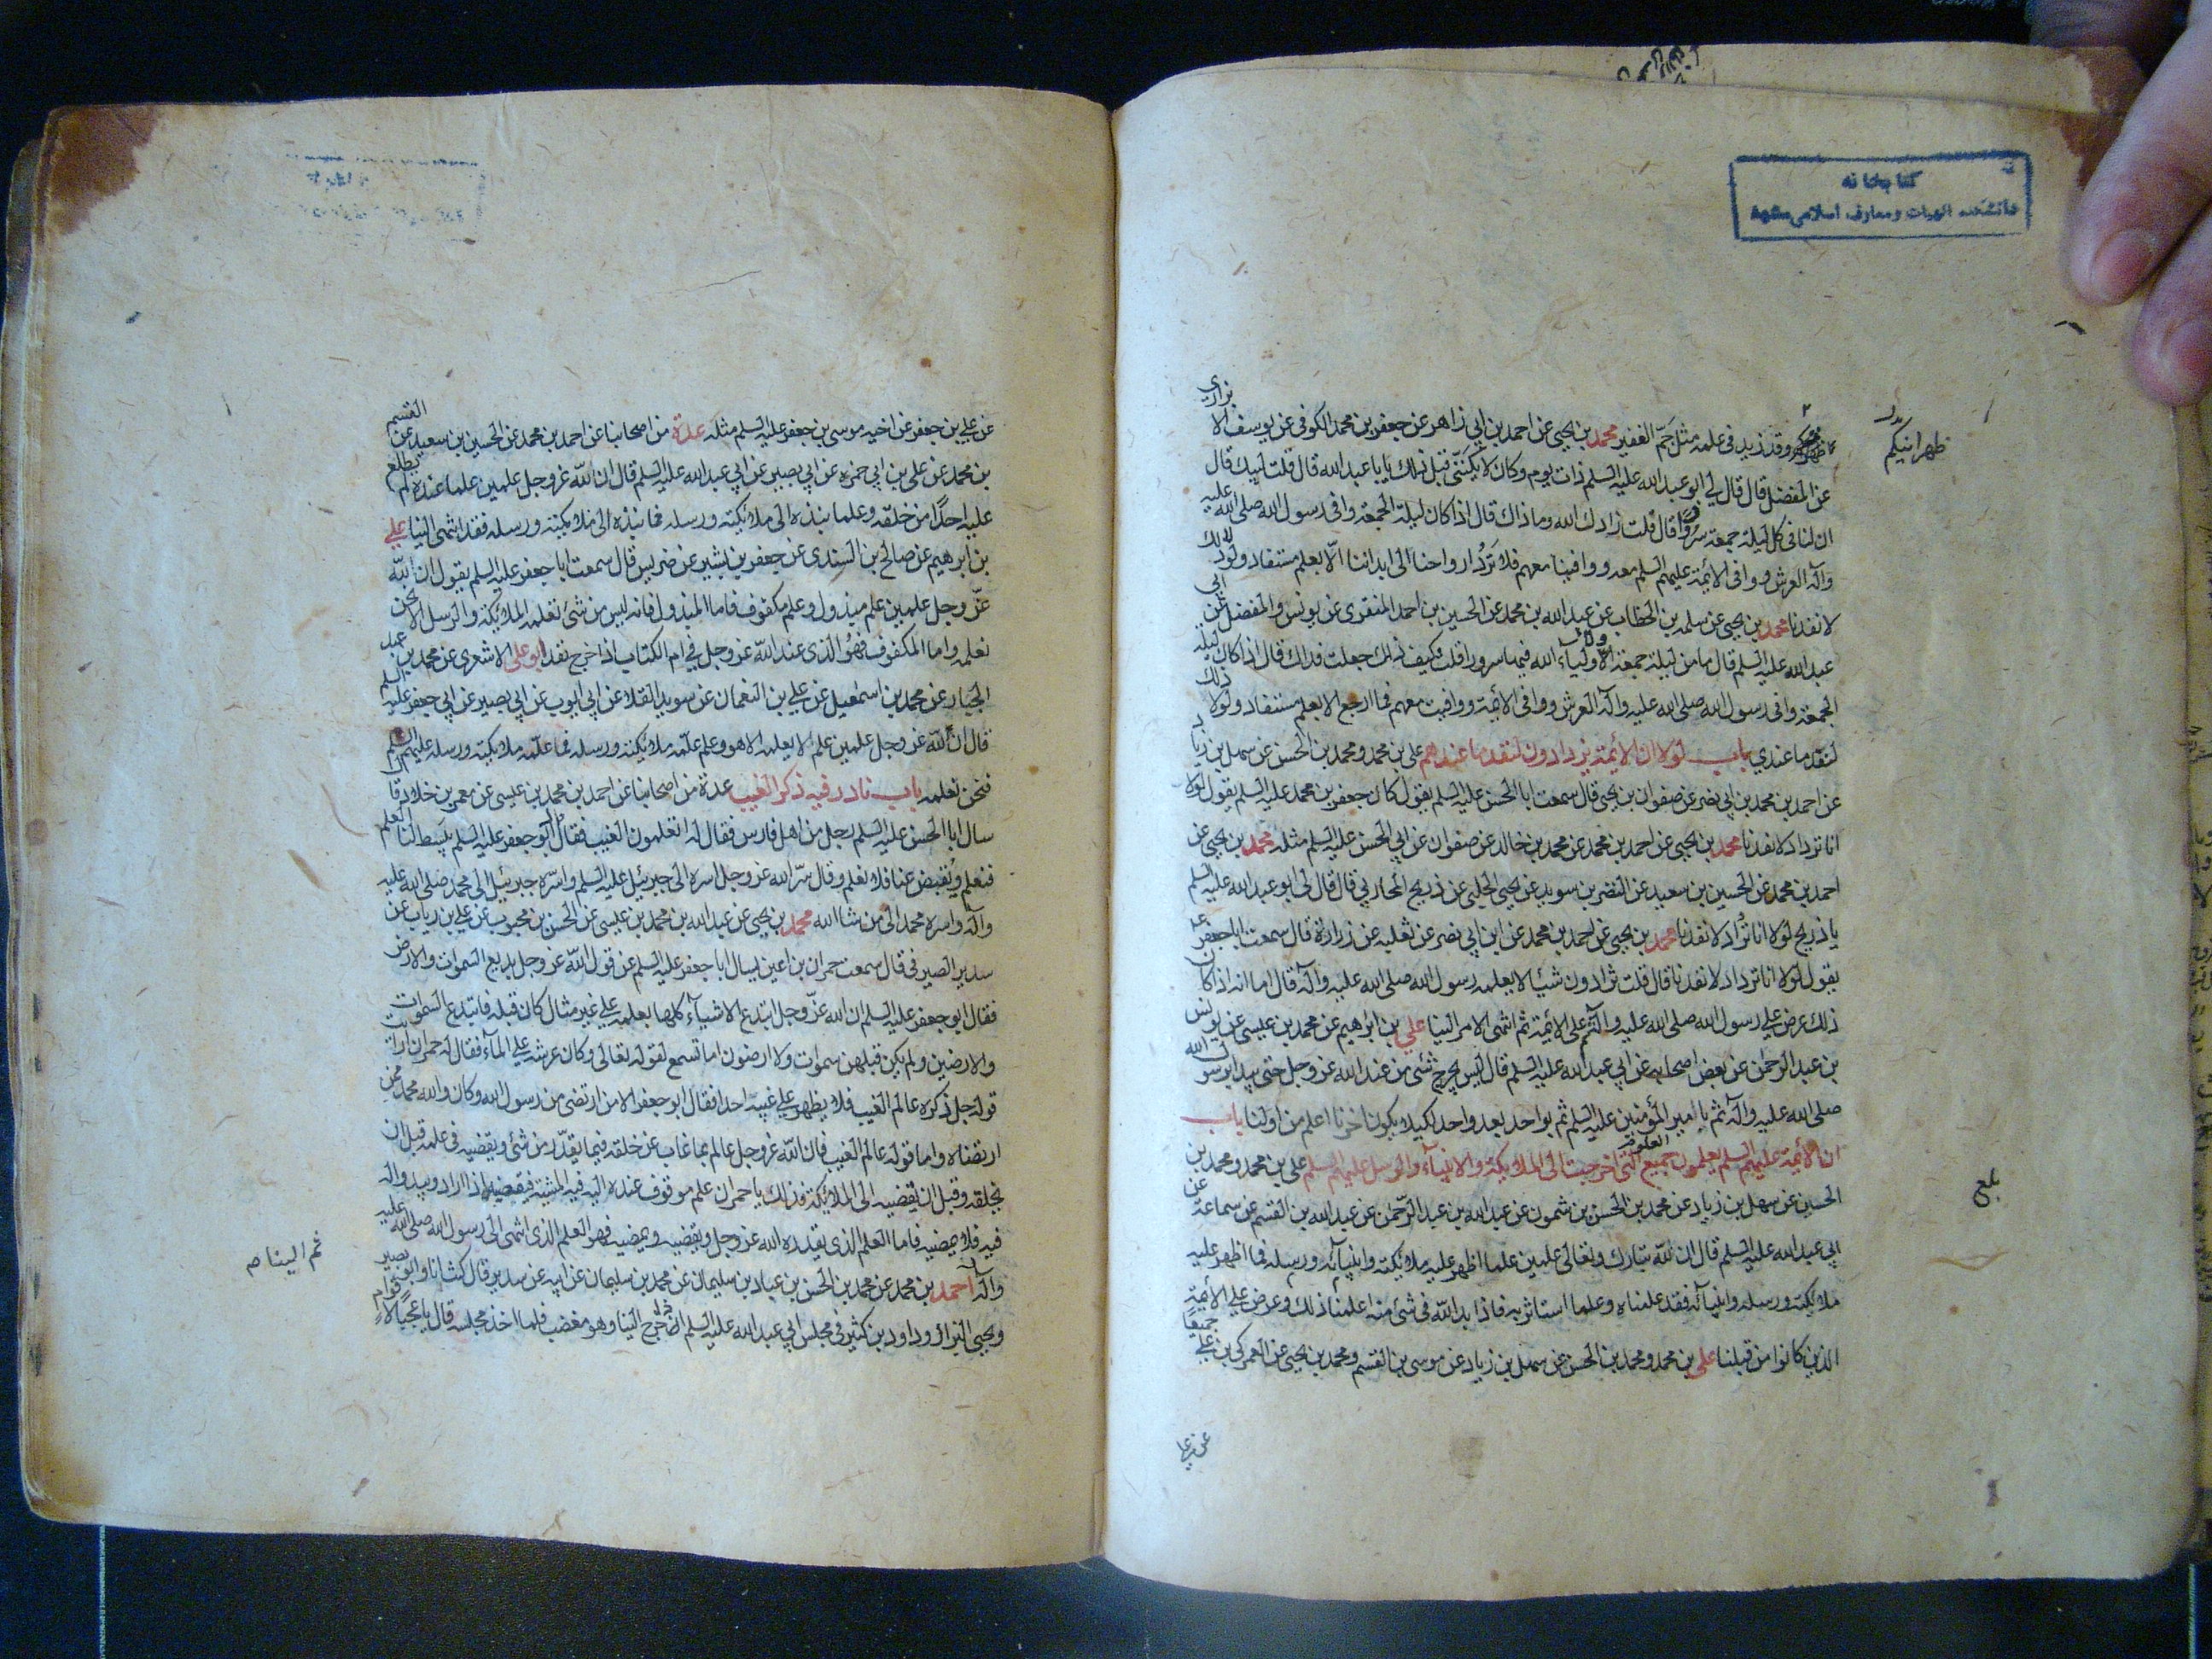 كتابخانه
دانشكده الهيات ومعارف اسلامى مشهد
ظهرانيكم
وقد زيد فى علمه مثل جم الغفير محمد بن يحيى عن احمد بن ابي زاهر عن جعفر بن محمد الكوفى عن يوسف الابزاري
عن المفضل قال قال لي ابو عبد الله عليه السلم ذات يوم وكان لا يكنني قبل ذلك يا با عبد الله قال قلت لبيك قال
ان لنا فى كل ليلة جمعة سرورا قال قلت زادك الله وما ذاك قال اذا كان ليلة الجمعة وافى رسول الله صلى الله عليه
وآله العرش ووافى الائمة عليهم السلم معه ووافينا معهم فلا ترد ارواحنا الى ابداننا الا بعلم مستفاد ولولا ذلك
لانفدنا محمد بن يحيى عن سلمه بن الخطاب عن عبد الله بن محمد عن الحسين بن احمد المنقرى عن يونس والمفضل عن ابي
عبد الله عليه السلم قال ما من ليلة جمعة الا ولاولياء الله فيها سرور قلت وكيف ذلك جعلت فداك قال اذا كان ليلة
الجمعة وافى رسول الله صلى الله عليه وآله العرش ووافى الائمة ووافيت معهم فما ارجع الا بعلم مستفاد ولولا ذلك
لنفد ما عندي باب لولا ان الائمة يزدادون لنفد ما عندهم على بن محمد ومحمد بن الحسن عن سهل بن زياد
عن احمد بن محمد بن ابي نصر عن صفوان بن يحيى قال سمعت ابا الحسن عليه السلم يقول كان جعفر بن محمد عليه السلم يقول لولا
انا نزداد لانفدنا محمد بن يحيى عن احمد بن محمد عن محمد بن خالد عن صفوان عن ابي الحسن عليه السلم مثله محمد بن يحيى عن
احمد بن محمد عن الحسين بن سعيد عن النضر بن سويد عن يحيى الحلبى عن ذريح المحاربي قال قال لى ابو عبد الله عليه السلم
يا ذريح لولا انا نزاد لانفدنا محمد بن يحيى عن احمد بن محمد عن ابن ابي نصر عن ثعلبه عن زرارة قال سمعت ابا جعفر
يقول لولا انا نزداد لانفدنا قال قلت تزادون شيئا لا يعلمه رسول الله صلى الله عليه وآله قال اما انه اذا كان
ذلك عرض على رسول الله صلى الله عليه وآله ثم على الائمة ثم انتهى الامر الينا علي بن ابراهيم عن محمد بن عيسى عن يونس
بن عبد الرحمن عن بعض اصحابه عن ابي عبد الله عليه السلم قال ليس يخرج شئ من عند الله عز وجل حتى يبدا برسول الله
صلى الله عليه وآله ثم با امير المؤمنين عليه السلم ثم بواحد بعد واحد لكيلا يكون اخرنا اعلم من اولنا باب
ان الائمة عليهم السلم يعلمون جميع العلوم التى خرجت الى الملائكة والانبياء والرسل عليهم السلم على بن محمد ومحمد بن
الحسين عن سهل بن زياد عن محمد بن الحسن بن شمون عن عبد الله بن عبد الرحمن عن عبد الله بن القسم عن سماعة عن
ابي عبد الله عليه السلم قال ان لله تبارك وتعالى علمين علما اظهر عليه ملائكته وانبيائه ورسله فما اظهر عليه
ملائكته ورسله وانبيائه فقد علمناه وعلما استاثر به فاذا بدا لله فى شئ منه اعلمنا ذلك وعرض على الائمة
الذين كانوا من قبلنا جميعا على بن محمد ومحمد بن الحسن عن سهل بن زياد عن موسى بن القسم ومحمد بن يحيى عن العمركي بن علي
بلغ
عن علي بن جعفر عن اخيه موسى بن جعفر عليه السلم مثله عدة من اصحابنا عن احمد بن محمد عن الحسين بن سعيد عن القسم
بن محمد عن على بن ابي حمزه عن ابي بصير عن ابي عبد الله عليه السلم قال ان لله عز وجل علمين علما عنده لم يطلع
عليه احدا من خلقه وعلما نبذه الى ملائكته ورسله فما نبذه الى ملائكته ورسله فقد انتهى الينا علي
بن ابرهيم عن صالح بن السندى عن جعفر بن بشير عن ضريس قال سمعت ابا جعفر عليه السلم يقول ان لله
عز وجل علمين علم مبذول وعلم مكفوف فاما المبذول فانه ليس من شئ تعلمه الملائكة والرسل الا نحن
نعلمه واما المكفوف فهو الذى عند الله عز وجل في ام الكتاب اذا خرج نفد ابو على الاشعري عن محمد بن عبد
الجبار عن محمد بن اسمعيل عن على بن النعمان عن سويد القلا عن ابى ايوب عن ابى بصير عن ابى جعفر عليه السلم
قال ان لله عز وجل علمين علم لا يعلمه الا هو وعلم علمه ملائكته ورسله فما علمه ملائكته ورسله عليهم السلم
فنحن نعلمه باب نادر فيه ذكر الغيب عدة من اصحابنا عن احمد بن محمد بن عيسى عن معمر بن خلاد قال
سال ابا الحسن عليه السلم رجل من اهل فارس فقال له اتعلمون الغيب فقال قال ابو جعفر عليه السلم يبسط لنا العلم
فنعلم ويقبض عنا فلا نعلم وقال سر الله عز وجل اسره الى جبرئيل عليه السلم واسره جبرئيل الى محمد صلى الله عليه
وآله واسره محمد الى من شا الله محمد بن يحيى عن عبد الله بن محمد بن عيسى عن الحسن بن محبوب عن على بن رياب عن
سدير الصيرفى قال سمعت حمران بن اعين يسال ابا جعفر عليه السلم عن قول الله عز وجل بديع السموات والارض
فقال ابو جعفر عليه السلم ان الله عز وجل ابتدع الاشياء كلها بعلمه على غير مثال كان قبله فابتدع السموات
والارضين ولم يكن قبلهن سموات ولا ارضون اما تسمع لقوله تعالى وكان عرشه على الماء فقال له حمران ارايت
قوله جل ذكره عالم الغيب فلا يظهر على غيبه احدا فقال ابو جعفر الا من ارتضى من رسول الله وكان والله محمد ممن
ارتضاه واما قوله عالم الغيب فان الله عز وجل عالم بما غاب عن خلقه فيما يقدر من شئ ويقضيه فى علمه قبل ان
يخلقه وقبل ان يقضيه الى الملائكة فذلك يا حمران علم موقوف عنده اليه فيه المشية فيقضيه اذا اراد ويبدو له
فيه فلا يمضيه فاما العلم الذى يقدره الله عز وجل ويقضيه ويمضيه فهو العلم الذى انتهى الى رسول الله صلى الله عليه
وآله احمد بن محمد عن محمد بن الحسن بن عباد بن سليمان عن محمد بن سليمان عن ابيه عن سدير قال كنت انا وابو بصير
ويحيى البزاز وداود بن كثير فى مجلس ابي عبد الله عليه السلم اذ خرج الينا وهو مغضب فلما اخذ مجلسه قال يا عجبا لاقوام
ثم الينا صح